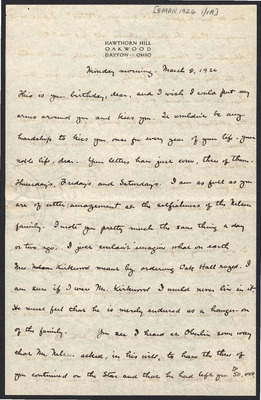 [8 MAR 1926 1/1A]
HAWTHORN HILL
OAKWOOD
DAYTON - OHIO
Monday morning. March 8, 1926
This is your birthday, dear, and I wish I could put my
arms around you and kiss you. It wouldn't be any
hardship to kiss you once for every year of your life - your
whole life, dear. Your letters have just come, three of them.
Thursday's, Friday's and Saturday's. I am as full as you
are of utter amazement at the selfishness of the Nelson
family. I wrote you pretty much the same thing a day
or two ago. I just couldn't imagine what on earth
Mrs. Nelson Kirkwood meant by ordering Oak Hall razed. I
am sure if I were Mr. Kirkwood I would never live in it.
He must feel that he is merely endured as a hanger-on
of the family. You see I heard at Oberlin some way
that Mr. Nelson asked, in his will, to have the three of
you continued on the Star and that he had left you 50,000